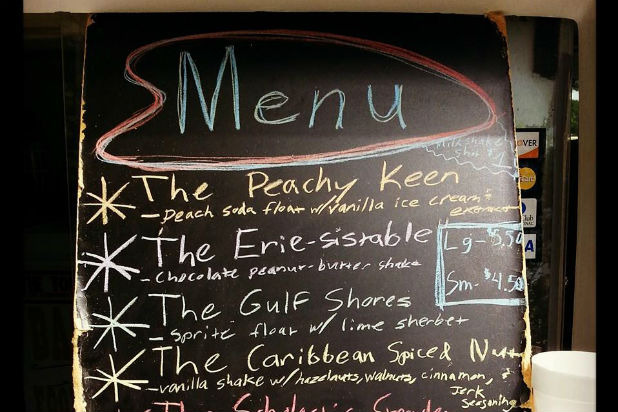 Menu
Milkshake
OVER
The Peachy Keen
- Peach soda float w/vanilla ice cream +
extract
The Erie-sistable
- Chocolate peanut-butter shake
Lg - $5.50
Sm - $4.50
The Gulf Shores
- Sprite float w/ lime sherbet
The Caribbean Spiced Nut
- vanilla shake w/ hazelnuts, walnuts, cinnamon, +
Jerk
Seasoning
The